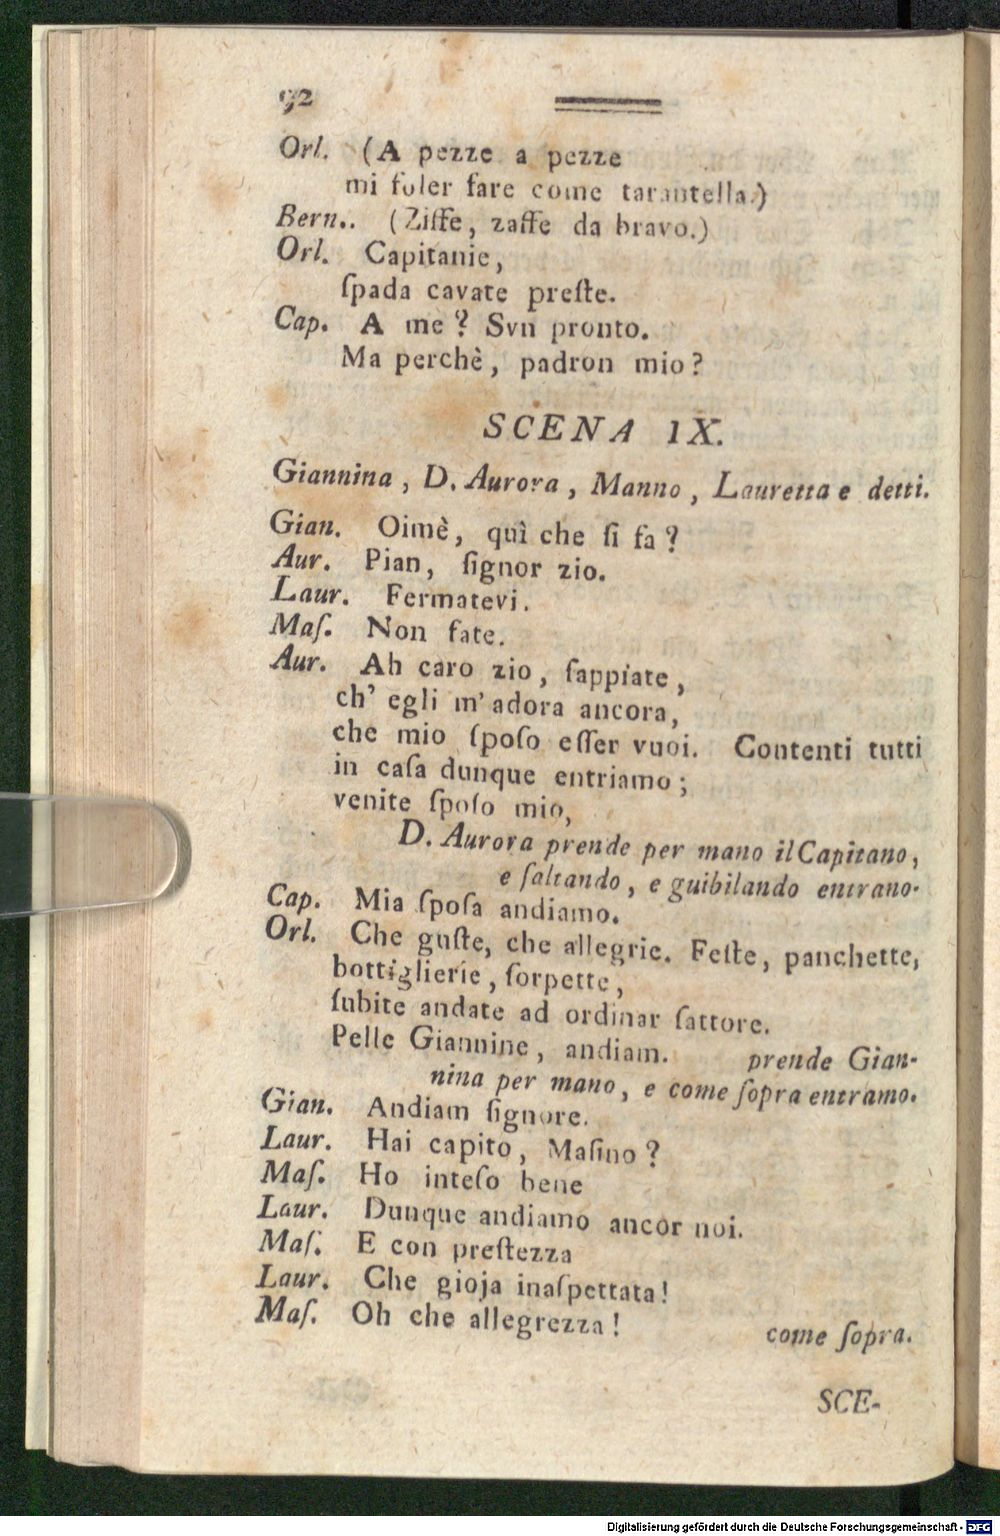 92
Orl. (A pezze a pezze
mi ſoler fare come tarantella.)
Bern.. (Ziffe, zaffe da bravo.)
Orl. Capitanie,
ſpada cavate preſte.
Cap. A me? Svn pronto.
Ma perchè, padron mio?
SCENA IX.
Giannina, D. Aurora, Manno, Lauretta e detti.
Gian. Oimè, quì che ſi fa?
Aur. Pian, ſignor zio.
Laur. Fermatevi.
Maſ. Non fate.
Aur. Ah caro zio, ſappiate,
ch' egli m' adora ancora,
che mio ſpoſo eſſer vuoi. Contenti tutti
in caſa dunque entriamo;
venite ſpoſo mio,
D. Aurora prende per mano il Capitano,
e ſaltando, e guibilando entrano.
Cap. Mia ſpoſa andiamo.
Orl. Che guſte, che allegrie. Feſte, panchette,
bottiglierie, ſorpette,
ſubite andate ad ordinar ſattore.
Pelle Giannine, andiam. prende Gian-
nina per mano, e come ſopra entramo.
Gian. Andiam ſignore.
Laur. Hai capito, Maſino?
Maſ. Ho inteſo bene
Laur. Dunque andiamo ancor noi.
Maſ. E con preſtezza
Laur. Che gioja inaſpettata!
Maſ. Oh che allegrezza!
come ſopra.
SCE-
Digitalisierung gefördert durch die Deutsche Forschungsgemeinschaft - DFG